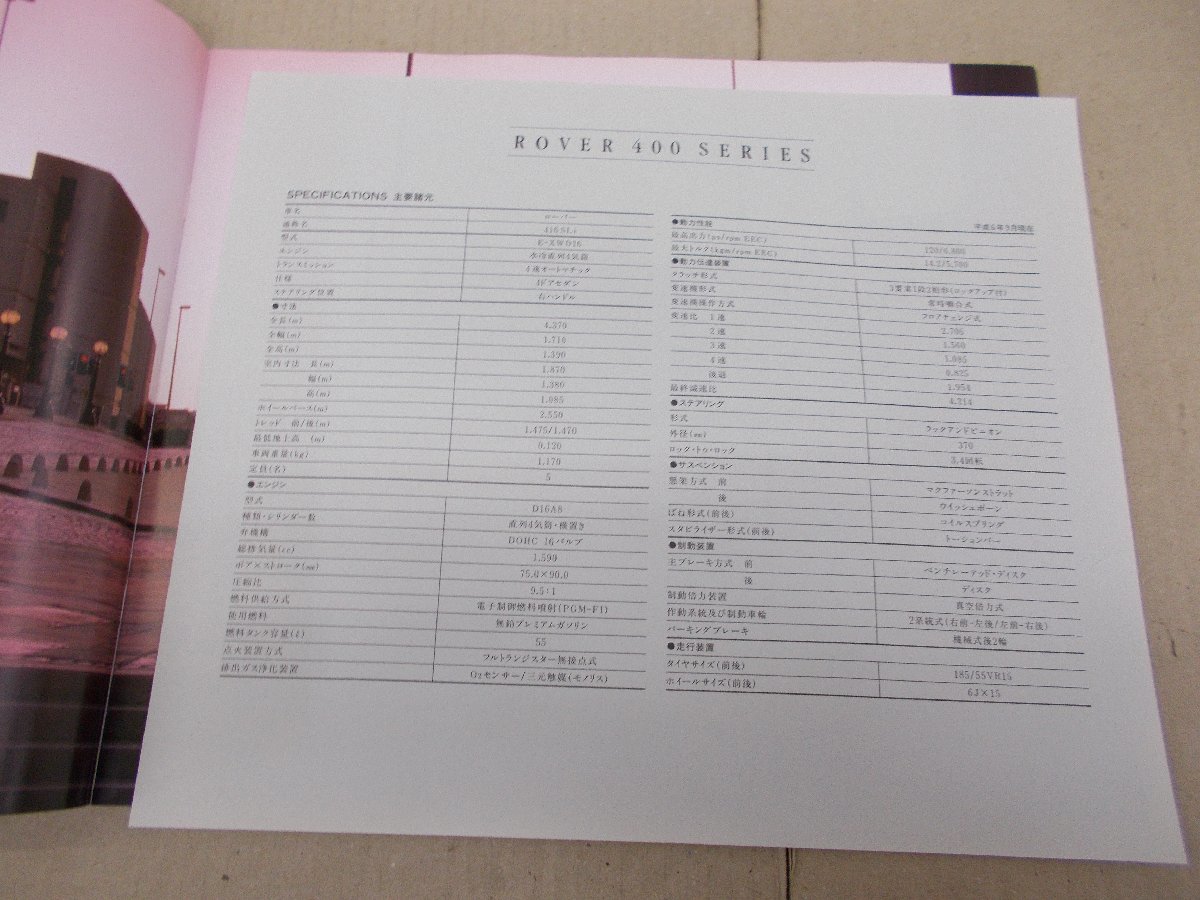 ROVER 400 SERIES
SPECIFICATIONS 主要諸元
車名 ローバー
通称名 416SLi
型式 E-XWD16
エンジン 水冷直列4気筒
トランスミッション 4速オートマチック
仕様 4ドアセダン
ステアリング位置 右ハンドル
●寸法
全長(m) 4.370
全幅(m) 1.710
全高(m) 1.390
室内寸法 長(m) 1.870
幅(m) 1.380
高(m) 1.085
ホイールベース(m) 2.550
トレッド 前/後(m) 1.475/1.470
最低地上高 (m) 0.120
車両重量(kg) 1,170
定員(名) 5
●エンジン
型式 D16A8
種類・シリンダー数 直列4気筒・横置き
弁機構 DOHC 16バルブ
総排気量(cc) 1,590
ボア×ストローク(mm) 75.0×90.0
圧縮比 9.5:1
燃料供給方式 電子制御燃料噴射(PGM-FI)
使用燃料 無鉛プレミアムガソリン
燃料タンク容量(ℓ) 55
点火装置方式 フルトランジスター無接点式
排出ガス浄化装置 O2センサー/三元触媒(モノリス)
●動力性能
最高出力(ps/rpm EEC)
最大トルク(kgm/rpm EEC) 14.2/5,700
●動力伝達装置
クラッチ形式 3要素1段2相形(ロックアップ付)
変速機形式 常時噛合式
変速機操作方式 フロアチェンジ式
変速比 1速 2.705
2速 1.560
3速 1.085
4速 0.825
後退 1.954
最終減速比 4.214
●ステアリング
形式 ラックアンドピニオン
外径(mm) 370
ロック・トゥ・ロック 3.4回転
●サスペンション
懸架方式 前 マクファーソンストラット
後 ウイッシュボーン
ばね形式(前後) コイルスプリング
スタビライザー形式(前後) トーションバー
●制動装置
主ブレーキ方式 前 ベンチレーテッド・ディスク
後 ディスク
制動倍力装置 真空倍力式
作動系統及び制動車輪 2系統式(右前-左後/左前-右後)
パーキングブレーキ 機械式後2輪
●走行装置
タイヤサイズ(前後) 185/55VR15
ホイールサイズ(前後) 6J×15